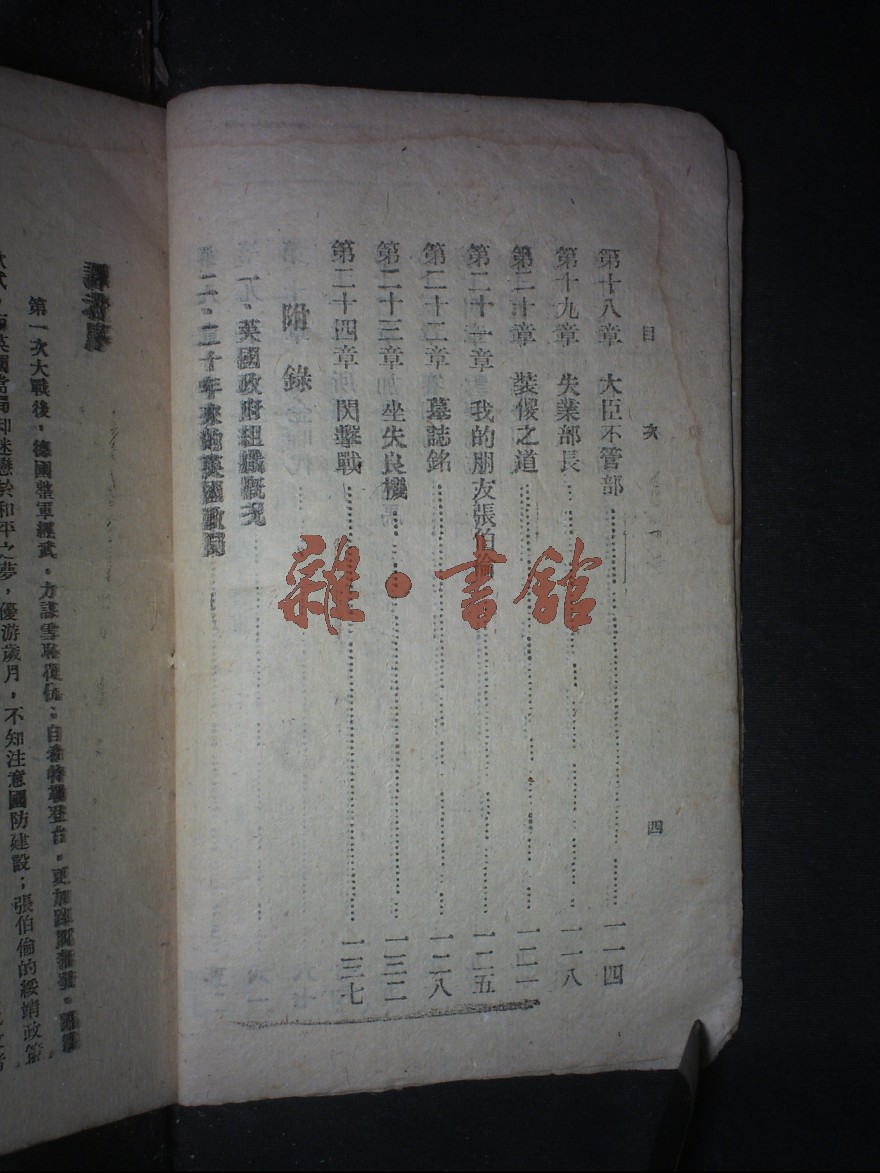 目次
四
第十八章　大臣不管部……一一四
第十九章　失業部長……一一八
第二十章　裝傻之道……一二一
第二十一章　我的朋友張伯倫……一二五
第二十二章　墓誌銘……一二八
第二十三章　坐失良機……一三二
第二十四章　閃擊戰……一三七
附錄
一、英國政府組織概況
二、二十年來的英國政局
雜·書館
第一次大戰後，德國整軍經武，方謀雪恥復仇；自希特勒登台，更加
英國當局却迷戀於和平之夢，優游歲月，不知注意國防建設；張伯倫的綏靖政策